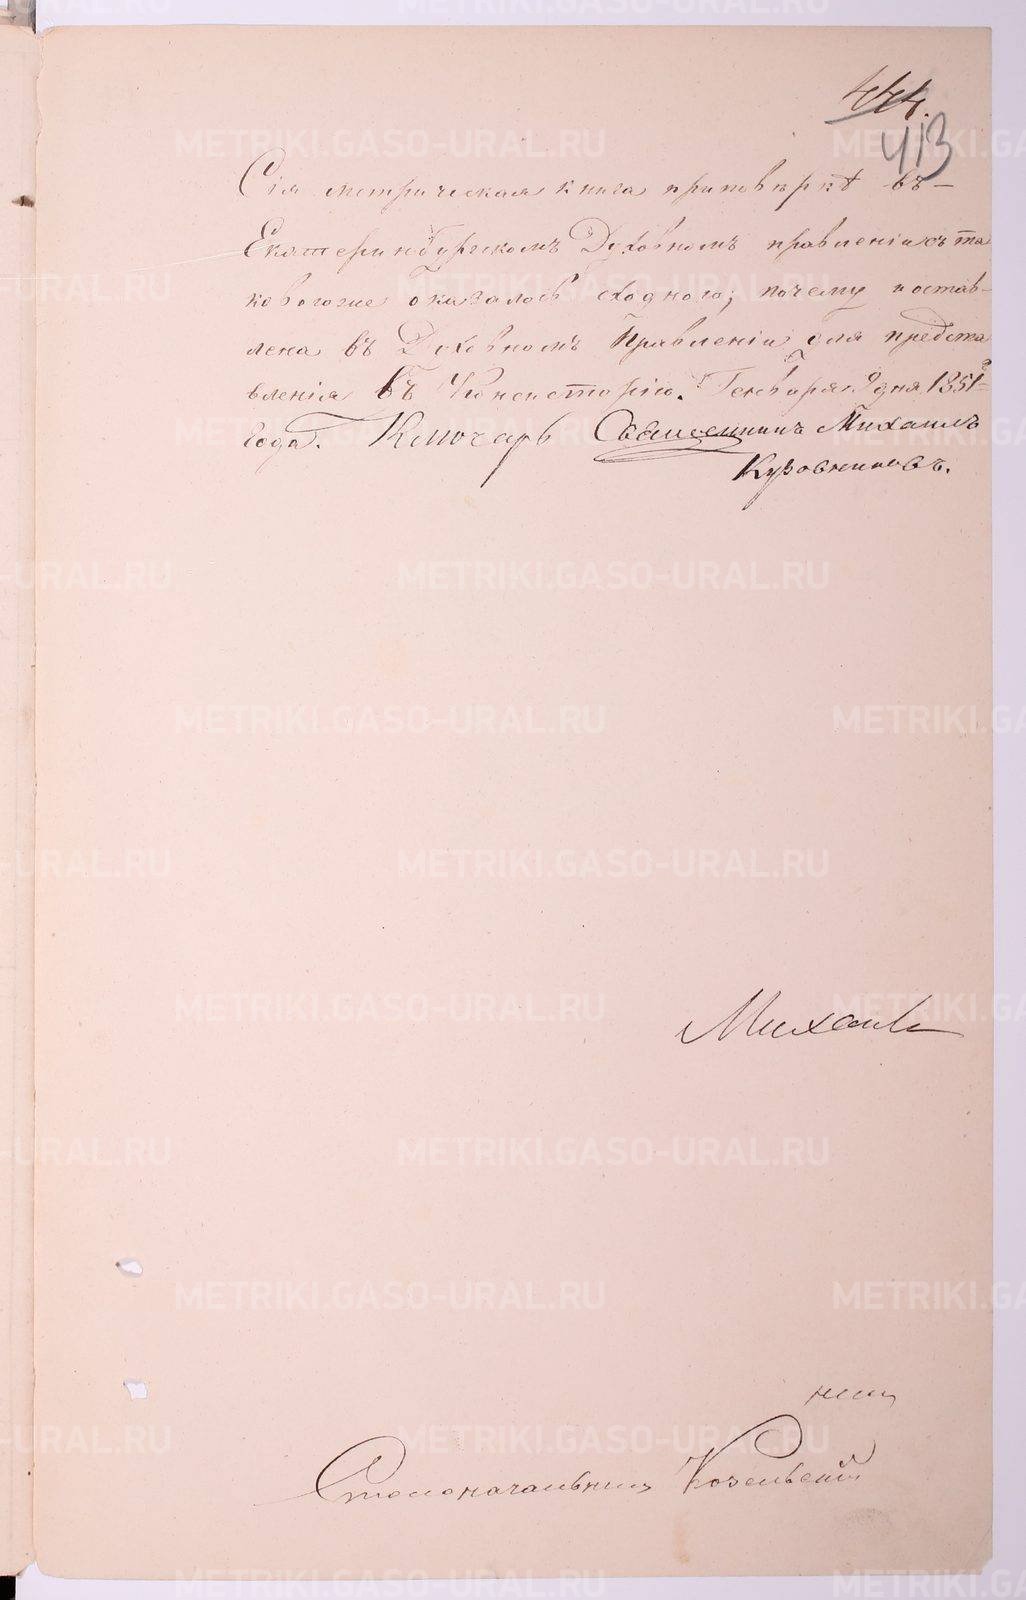 444.
413
Сія метрическая книга приповѣркѣ въ
Екатеринбургскомъ Духовномъ правленіи съ та
ковоюже оказалось сходною; почему и остав-
лена въ Духовномъ Правленіи для предста
вленія въ Консисторію. Генваря 9 дня 1851го
года. Ключарь Священникъ Михаилъ
Куровниковъ.
Михаил
Столоначальникъ
METRIKI.GASO-URAL.RU